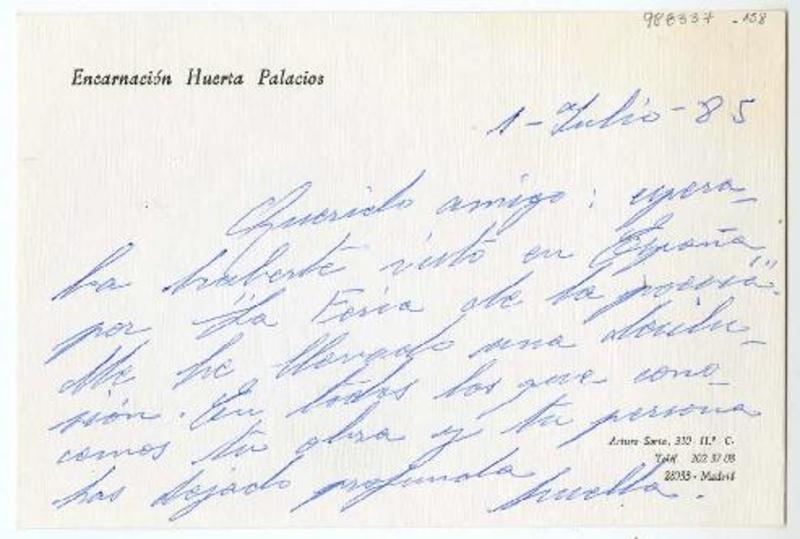 988337 - 158
Encarnación Huerta Palacios
1 - Julio - 85
Querido amigo: espera-
ba haberte visto en España
por "la Feria de la poesía".
Me he llevado una desilu-
sión. En todos los que cono-
cemos tu obra y tu persona
has dejado profunda huella.
Arturo Soria, 310 11.º C.
Teléf. 202 37 08
28033 - Madrid